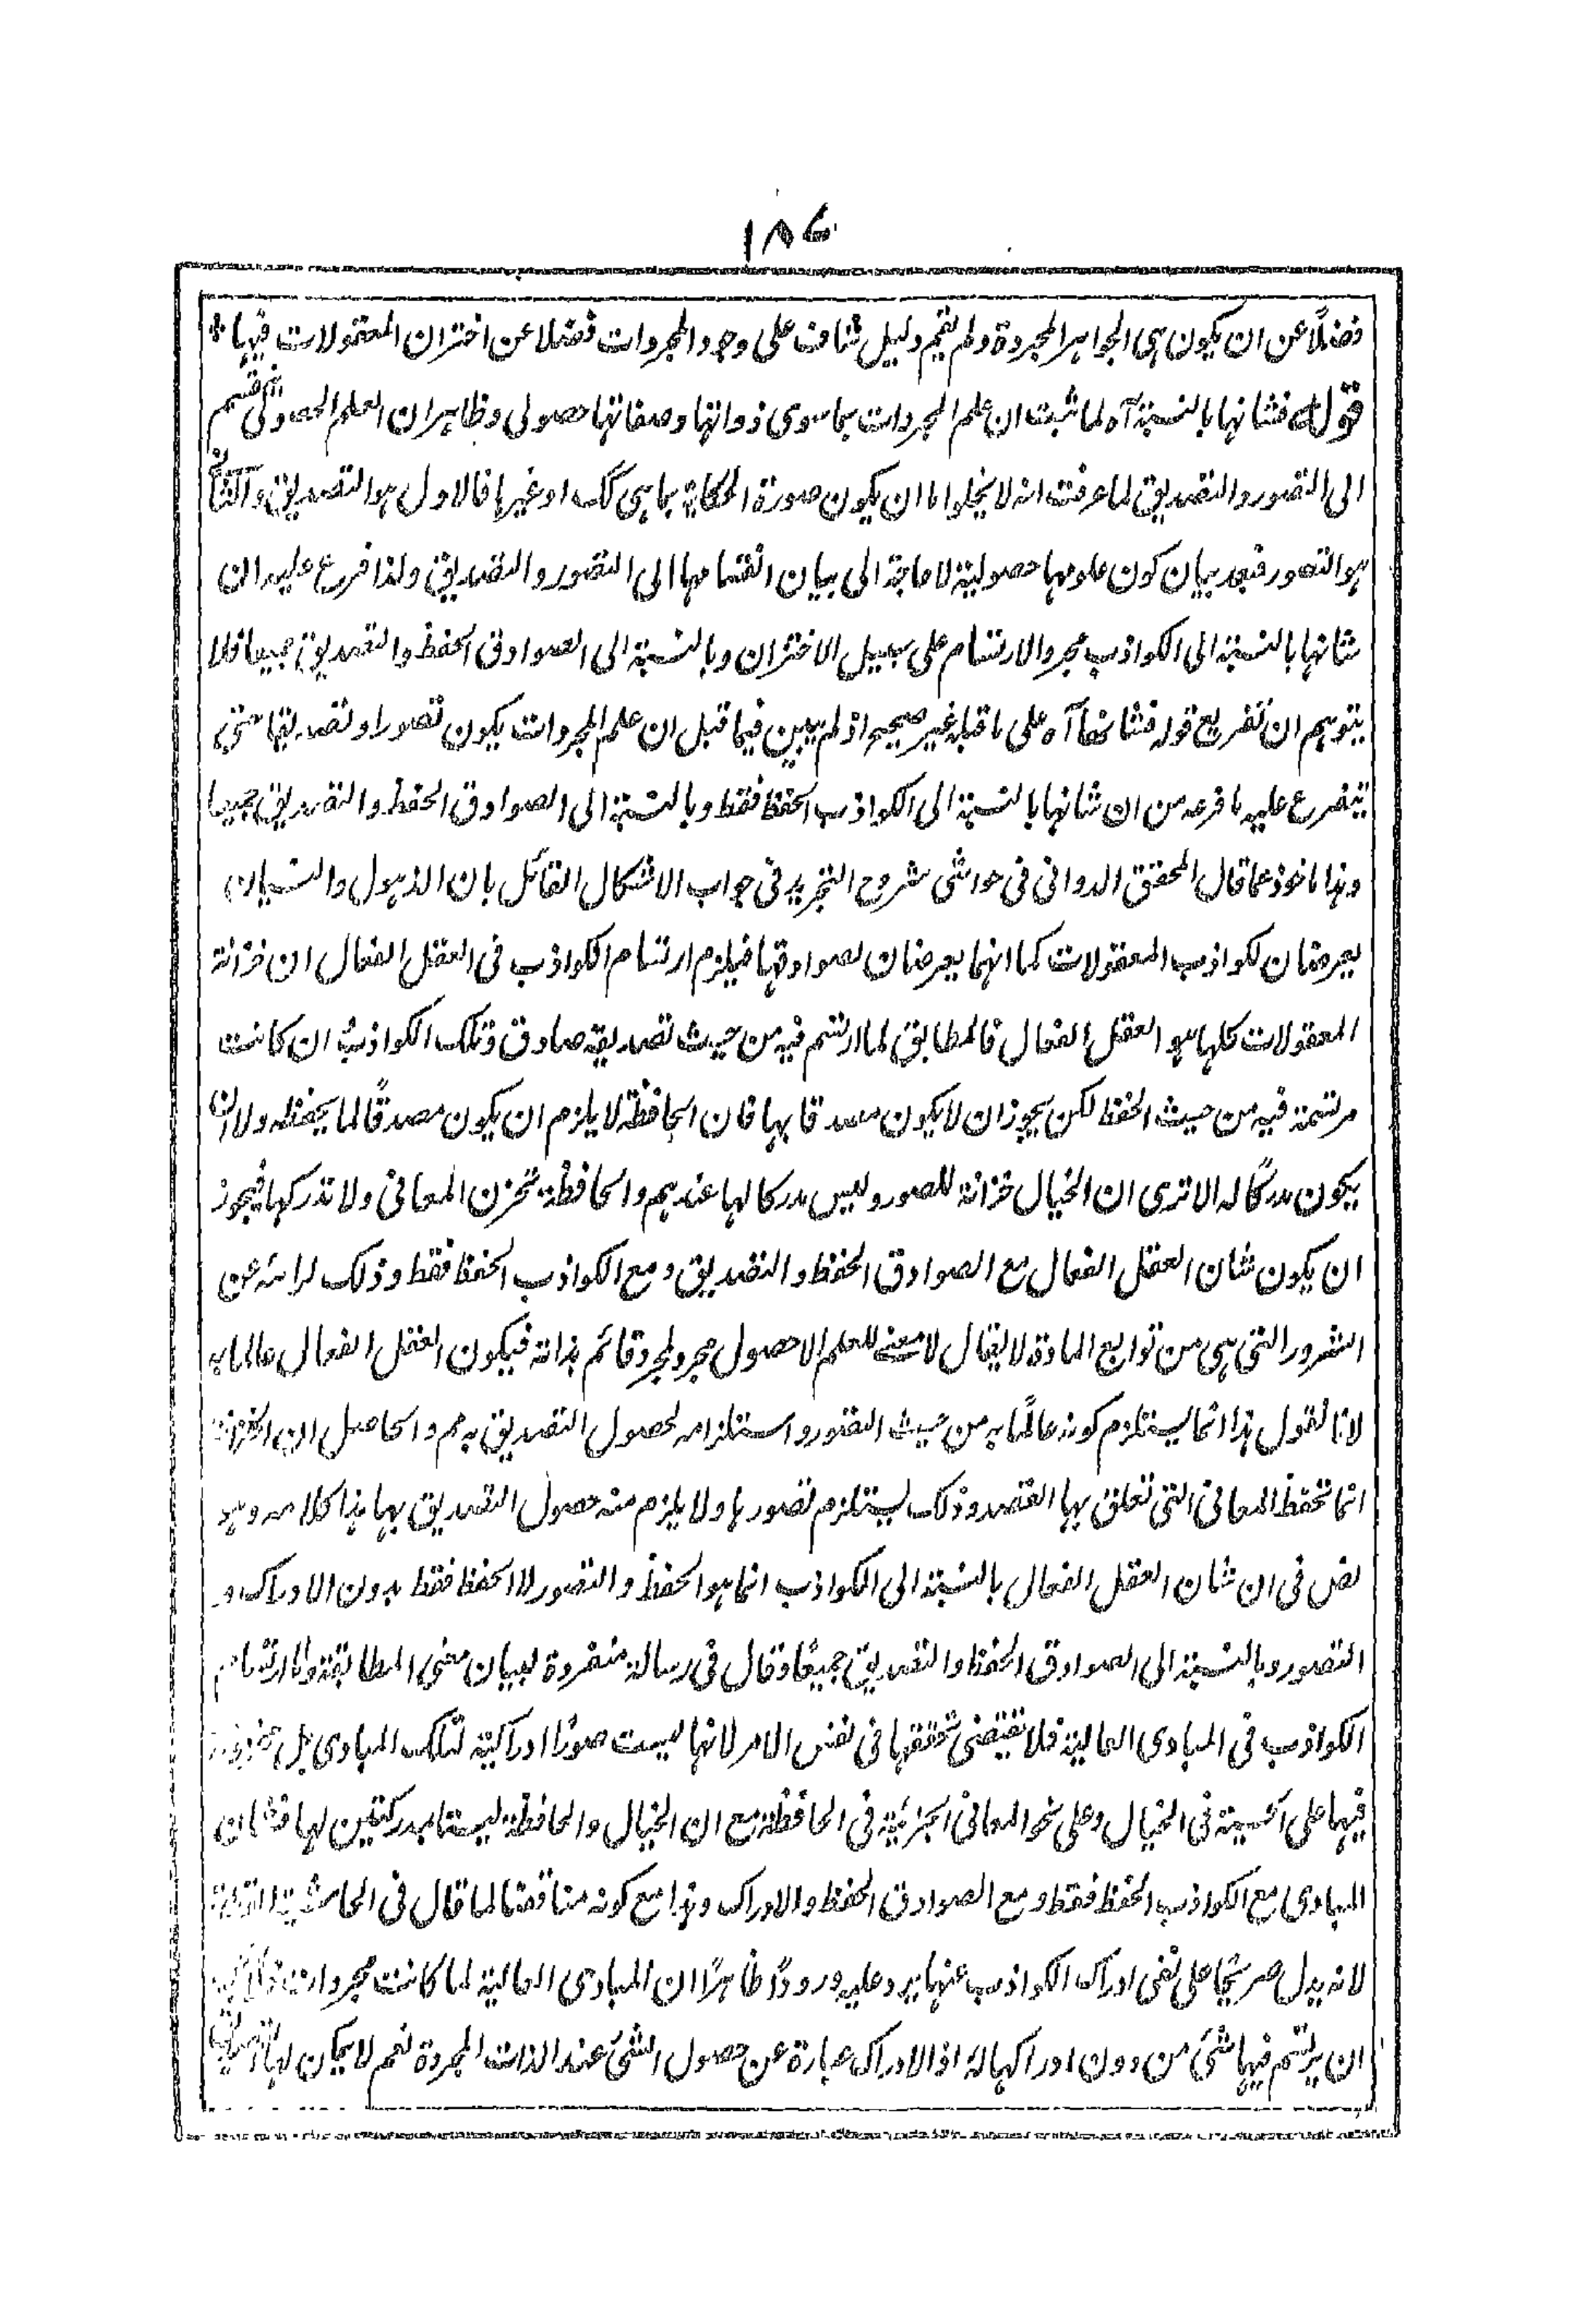 ١٨٦
فضلًا عن ان يكون هى الجواهر المجردة ولم يقم دليل شاف على وجود المجردات فضلا عن اختزان المعقولات فيها
قوله فشانها بالنسبة آه لما ثبت ان علم المجردات بما سوى ذواتها وصفاتها حصولى وظاهر ان العلم الحصولى ينقسم
الى التصور والتصديق لما عرفت انه لا يخلوا اما ان يكون صورة الحكاية بما هى كك او غيرها فالاول هو التصديق والثانى
هو التصور فبعد بيان كون علومها حصولية لا حاجة الى بيان انقسامها الى التصور والتصديق ولذا فرع عليه ان
شانها بالنسبة الى الكواذب مجرد الارتسام على سبيل الاختزان وبالنسبة الى الصوادق الحفظ والتصديق جميعا فلا
يتوهم ان تفريع قوله فشانها آه على ما قبله غير صحيح اذ لم يبين فيما قبل ان علم المجردات يكون تصورا وتصديقا حتى
يتفرع عليه ما فرعه من ان شانها بالنسبة الى الكواذب الحفظ فقط وبالنسبة الى الصوادق الحفظ والتصديق جميعا
وهذا ماخوذ عما قال المحقق الدوانى فى حواشى شروح التجريد فى جواب الاشكال القائل بان الذهول والنسيان
يعرضان لكواذب المعقولات كما انهما يعرضان لصوادقها فيلزم ارتسام الكواذب فى العقل الفعال ان خزانة
المعقولات كلها هو العقل الفعال فالمطابق لما ارتسم فيه من حيث تصديقه صادق وتلك الكواذب ان كانت
مرتسمة فيه من حيث الحفظ لكن يجوز ان لا يكون مصدقا بها فان الحافظة لا يلزم ان يكون مصدقًا لما يحفظه ولا ان
يكون مدركًا له الا ترى ان الخيال خزانة للصور وليس مدركا لها عندهم والحافظة تخزن المعانى ولا تدركها فيجوز
ان يكون شان العقل الفعال مع الصوادق الحفظ والتصديق ومع الكواذب الحفظ فقط وذلك لبرائته عن
الشرور التى هى من توابع المادة لا يقال لا معنى للعلم الا حصول مجرد لمجرد قائم بذاته فيكون العقل الفعال عالما به
لانا نقول هذا انما يستلزم كونه عالمًا به من حيث التصور واستلزامه لحصول التصديق به مم والحاصل ان الخزانة
انما تحفظ المعانى التى تعلق بها القصد وذلك يستلزم تصورها ولا يلزم منه حصول التصديق بها هذا كلامه وهو
نص فى ان شان العقل الفعال بالنسبة الى الكواذب انما هو الحفظ والتصور لا الحفظ فقط بدون الادراك و
التصور وبالنسبة الى الصوادق الحفظ والتصديق جميعًا وقال فى رسالة منفردة لبيان معنى المطابقة واما ارتسام
الكواذب فى المبادى العالية فلا يقتضى تحققها فى نفس الامر لانها ليست صورًا ادراكية لتلك المبادى بل مخزونة
فيها على الحسية فى الخيال وعلى نحو المعانى الجزئية فى الحافظة مع ان الخيال والحافظة ليستا بمدركتين لها فشان
المبادى مع الكواذب الحفظ فقط ومع الصوادق الحفظ والادراك وهذا مع كونه مناقضا لما قال فى الحاشية القديمة
لانه يدل صريحًا على نفى ادراك الكواذب عنها يرد عليه ورودًا ظاهرًا ان المبادى العالية لما كانت مجردات
ان يرتسم فيها شئ من دون ادراكها له اذ الادراك عبارة عن حصول الشئ عند الذات المجردة نعم لا يمكن لها